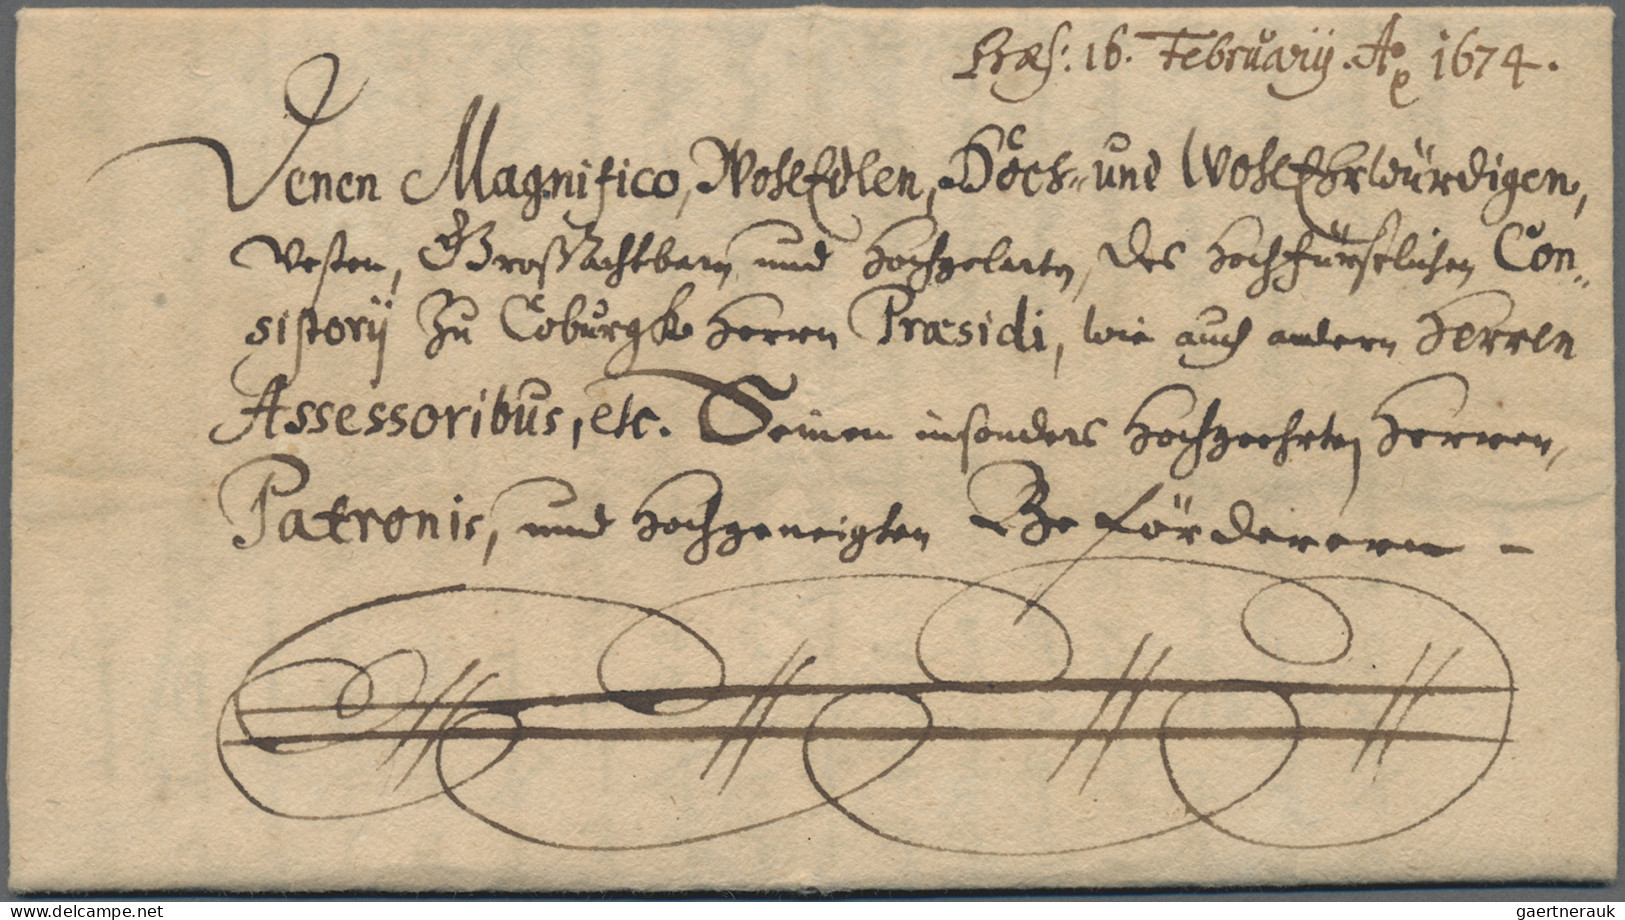 Præs: 16. Februarij. Ao 1674.
Denen Magnifico, WohlEdlen, Hoch- und WohlEhrwürdigen,
Vesten, GroßAchtbarn und Hochgelarten, des Hochfürstlichen Con-
sistorij Zu Coburgk Herrn Præsidi, wie auch andern Herren
Assessoribus, etc. Seinen insonders Hochgeehrten Herren,
Patronis, und Hochgeneigten Beförderern -
www.delcampe.net
gaertnerauk